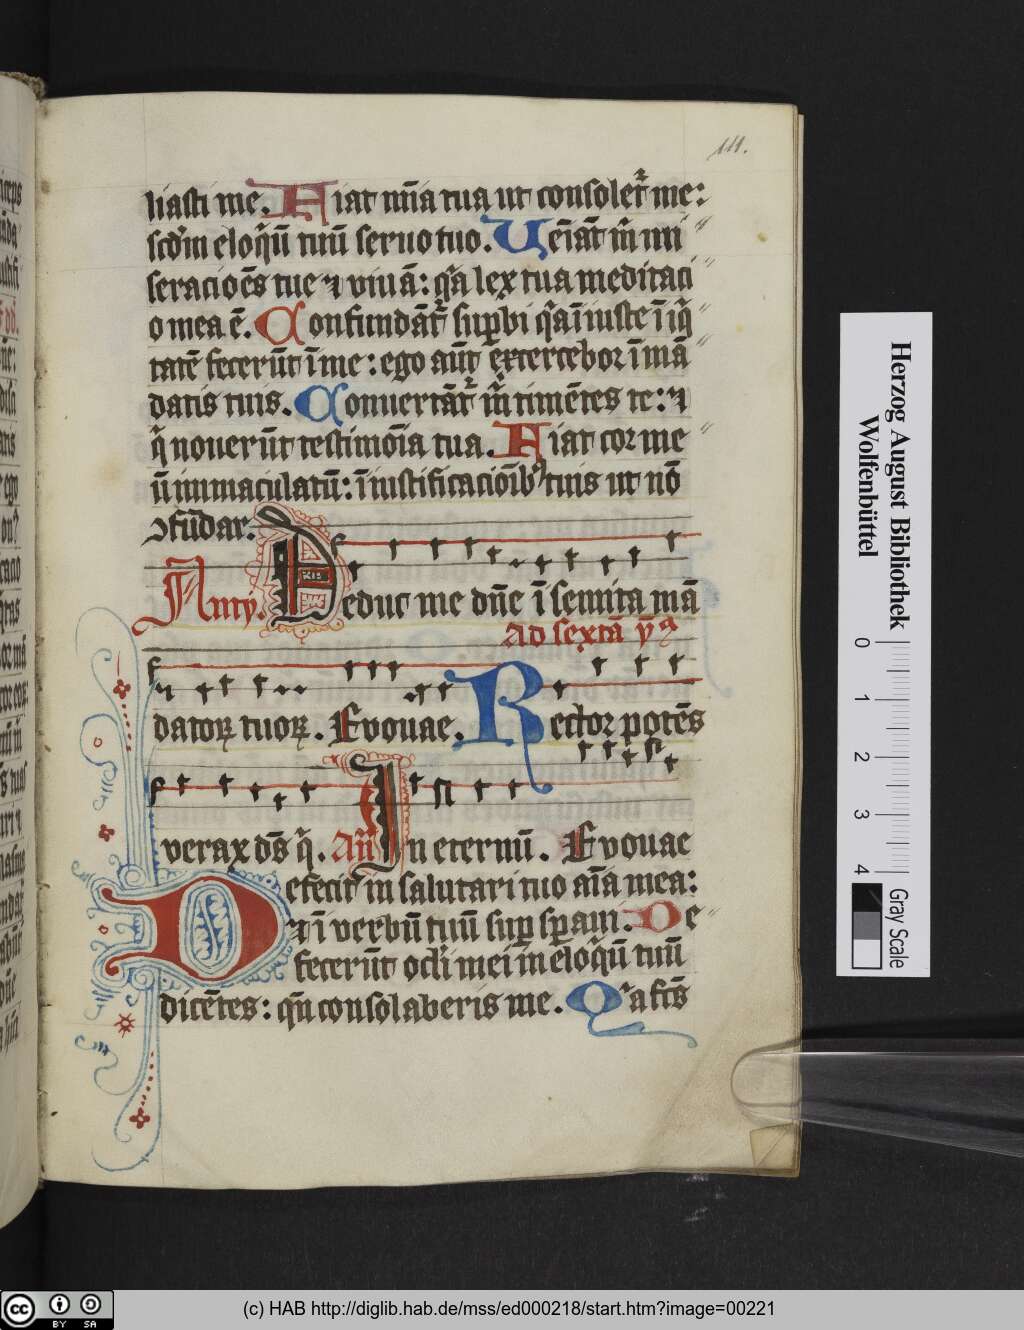 111.
liasti me. Fiat mīa tua ut consolet᷑ me:
scd̄m eloq̄ū tuū seruo tuo. Uēiāt m̄ mi
seracioēs tue ⁊ viuā: q̄a lex tua meditaci
o mea ē. Confundāt᷑ supꝑbi q̄a īiuste ī iq̄
tatē fecerūt ī me: ego aūt exercebor ī mā
datis tuis. Conuertāt᷑ m̄ timētes te: ⁊
q̄ nouerūt testimoīa tua. Fiat cor me
ū immaculatū: ī iustificacioīb᷒ tuis ut nō
ꝯfūdar.
Anty. Deduc me dn̄e ī semita mā
Ad sextā y᷒
datoꝝ tuoꝝ. Evovae. Rector potēs
verax ds̄ q̄. Añ In eternū. Evovae
Defecit in salutari tuo aīa mea:
⁊ ī verbū tuū suꝑ sꝑaui. De
fecerūt oc̄li mei in eloq̄ū tuū
dicētes: qn̄ consolaberis me. Q̄a fcs̄
Herzog August Bibliothek
Wolfenbüttel
0 1 2 3 4
Gray Scale
cc BY SA
(c) HAB http://diglib.hab.de/mss/ed000218/start.htm?image=00221